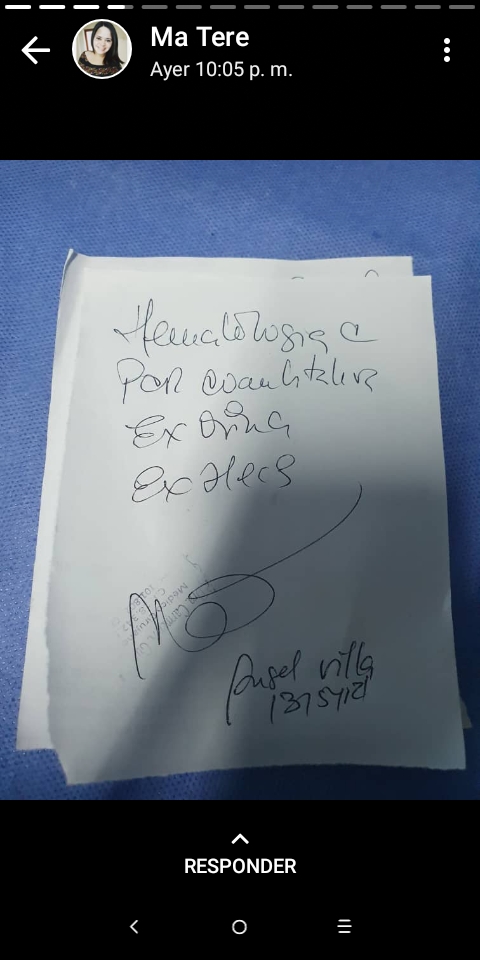 Ma Tere
Ayer 10:05 p. m.
Hematologia C
PCR cuantitativa
Ex Orina
Ex Heces
Angel Villa
RESPONDER